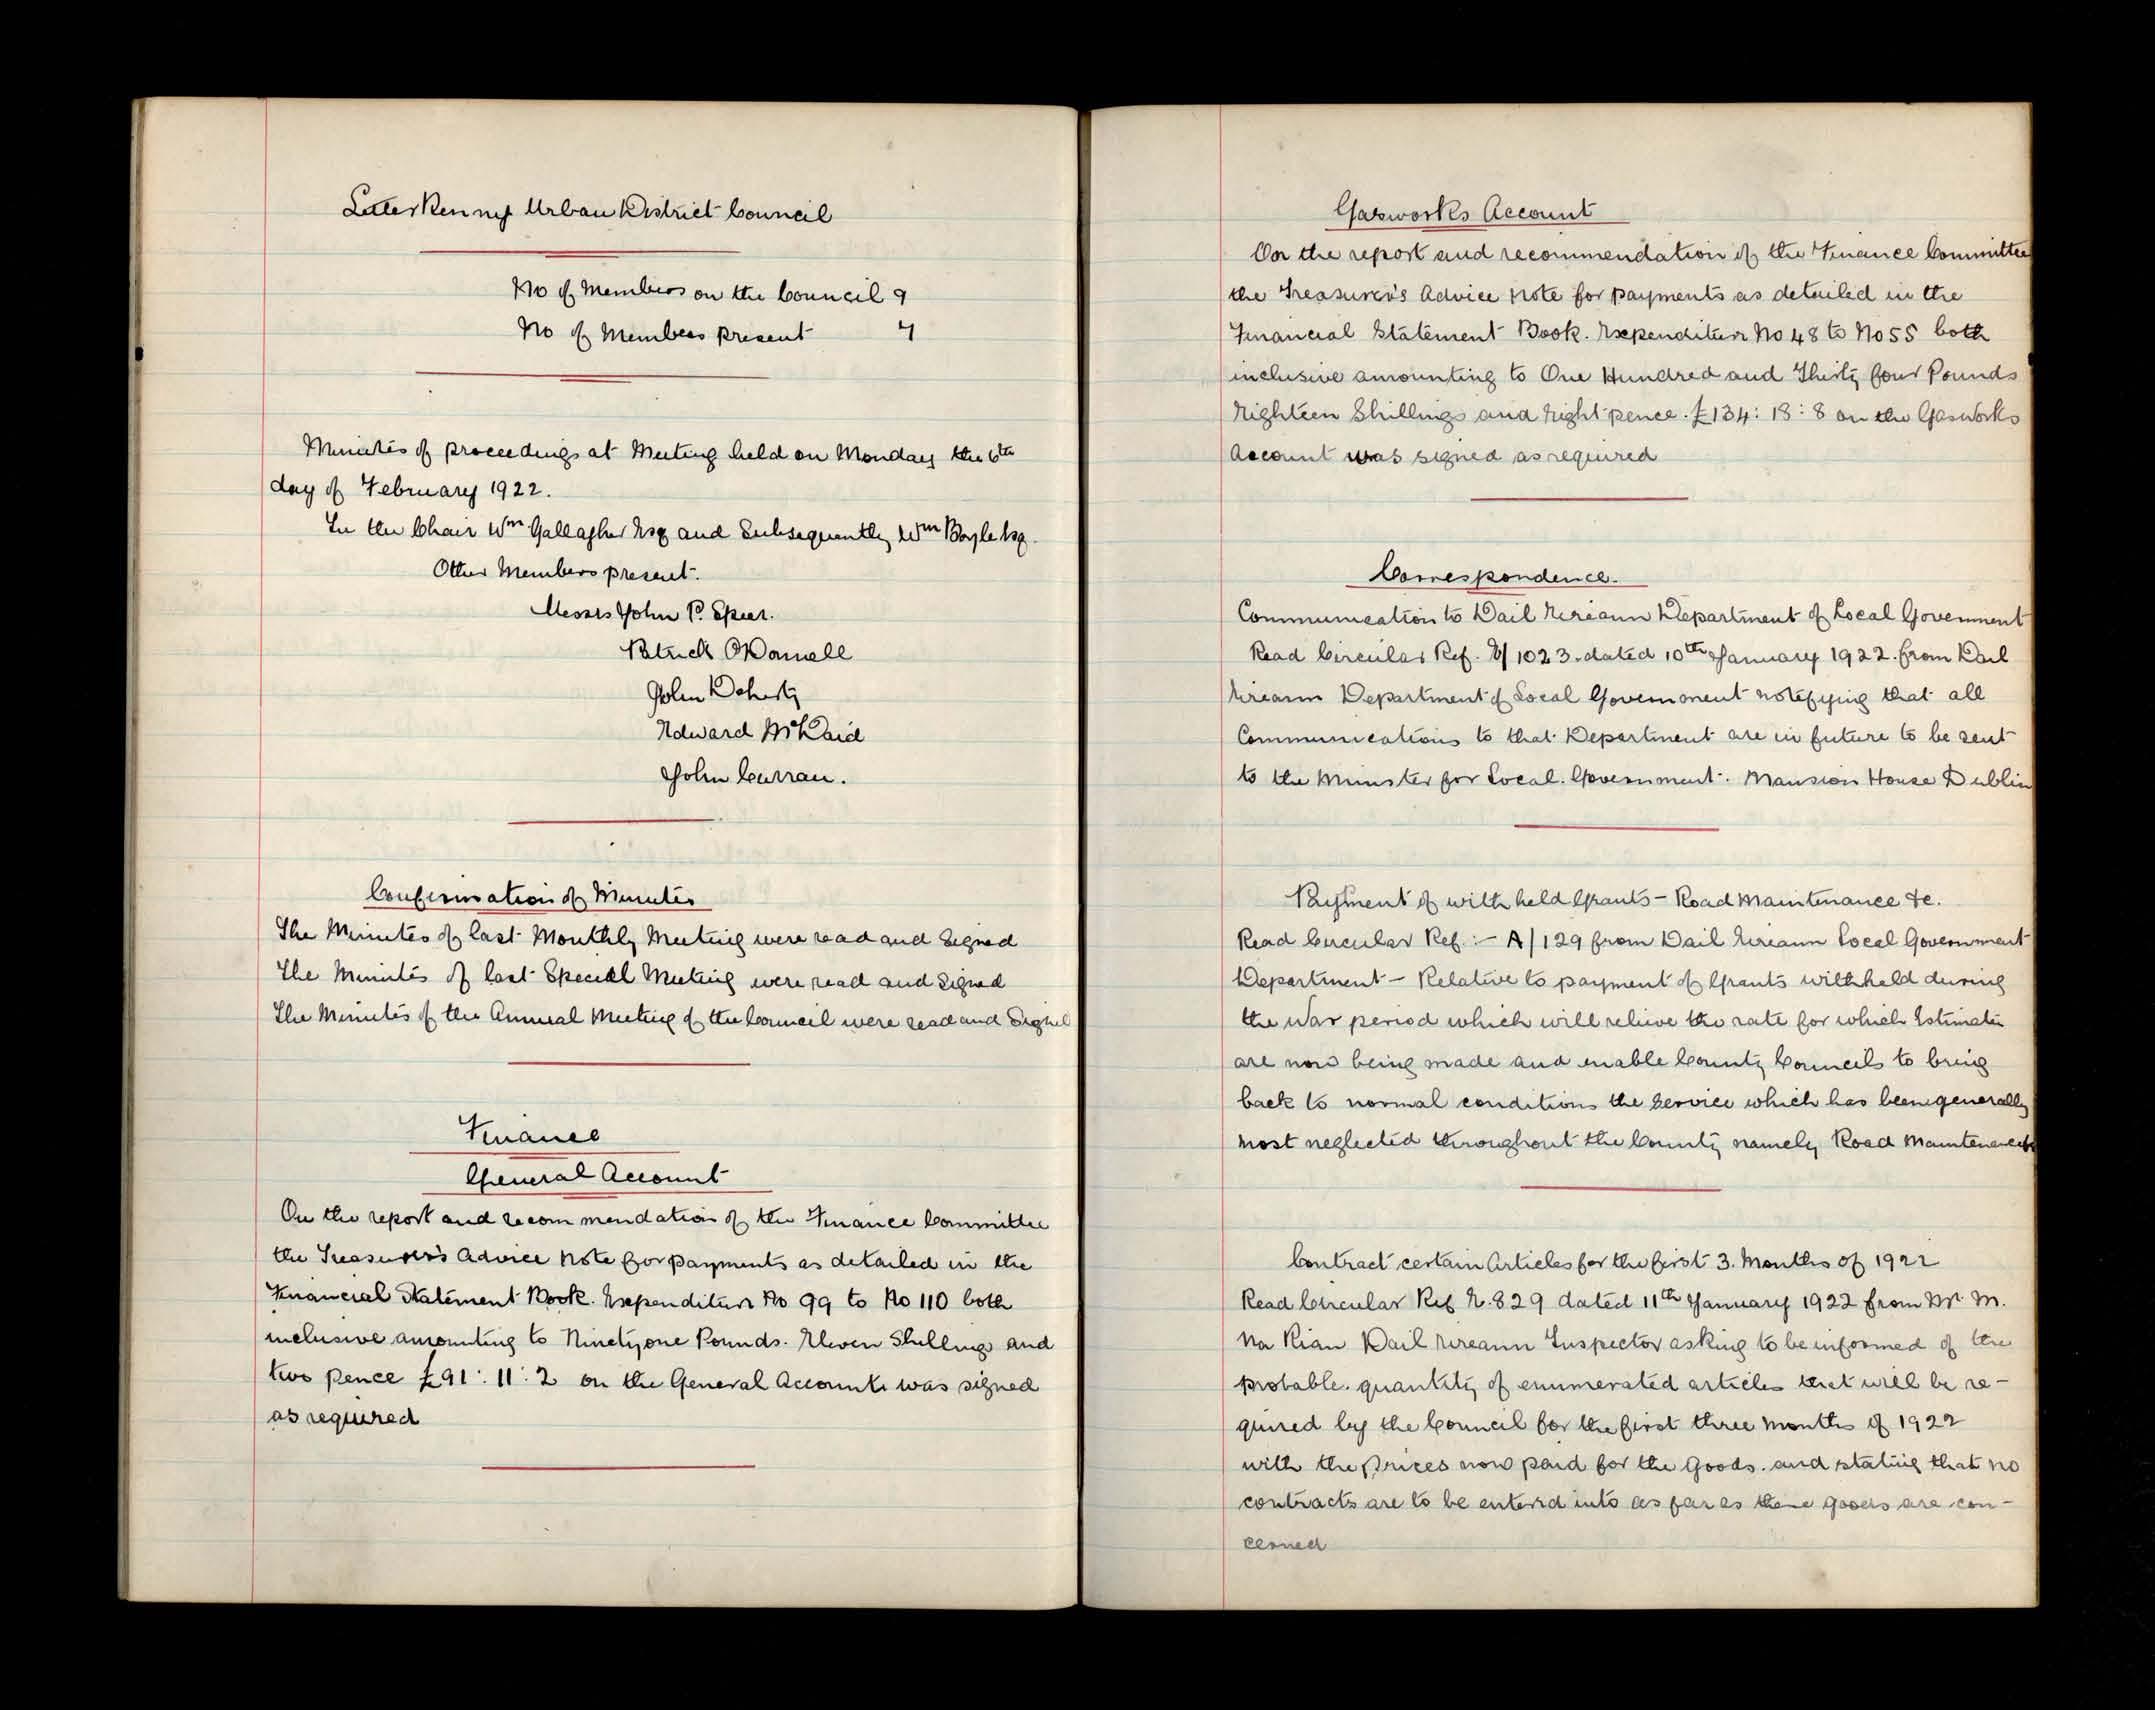 Letterkenny Urban District Council
No of Members on the Council 9
No of Members present 7
Minutes of proceedings at Meeting held on Monday the 6th
day of February 1922.
In the Chair Wm Gallagher Esq and Subsequently Wm Boyle Esq.
Other Members present.
Messrs John P. Speer.
Patrick O'Donnell
John Doherty
Edward McDaid
John Curran.
Confirmation of Minutes
The Minutes of last Monthly Meeting were read and Signed
The Minutes of last Special Meeting were read and Signed
The Minutes of the Annual Meeting of the Council were read and Signed
Finance
General Account
On the report and recommendation of the Finance Committee
the Treasurer's Advice Note for payments as detailed in the
Financial Statement Book. Expenditure No 99 to No 110 both
inclusive amounting to Ninety one Pounds. Eleven Shillings and
two pence £91:11:2 on the General Accounts was signed
as required
Gasworks Account
On the report and recommendation of the Finance Committee
the Treasurer's Advice Note for payments as detailed in the
Financial Statement Book. Expenditure No 48 to No 55 both
inclusive amounting to One Hundred and Thirty four Pounds
Eighteen Shillings and Eight pence. £134:18:8 on the Gasworks
Account was signed as required
Correspondence.
Communication to Dail Eireann Department of Local Government
Read Circular Ref. 1023. dated 10th January 1922. from Dail
Eireann Department of Local Government notifying that all
Communications to that Department are in future to be sent
to the Minster for Local. Government. Mansion House Dublin
Payment of withheld Grants - Road Maintenance &c.
Read Circular Ref:- A/129 from Dail Eireann Local Government
Department - Relative to payment of Grants withheld during
the War period which will relieve the rate for which Estimates
are now being made and enable County Councils to bring
back to normal conditions the Service which has been generally
most neglected throughout the County namely Road Maintenance
Contract certain Articles for the first 3. Months of 1922
Read Circular Ref E.829 dated 11th January 1922 from Mr. M.
Mac Rian Dail Eireann Inspector asking to be informed of the
probable. quantity of enumerated articles that will be re-
quired by the Council for the first three months of 1922
with the prices now paid for the goods. and stating that no
contracts are to be entered into as far as these goods are con-
cerned